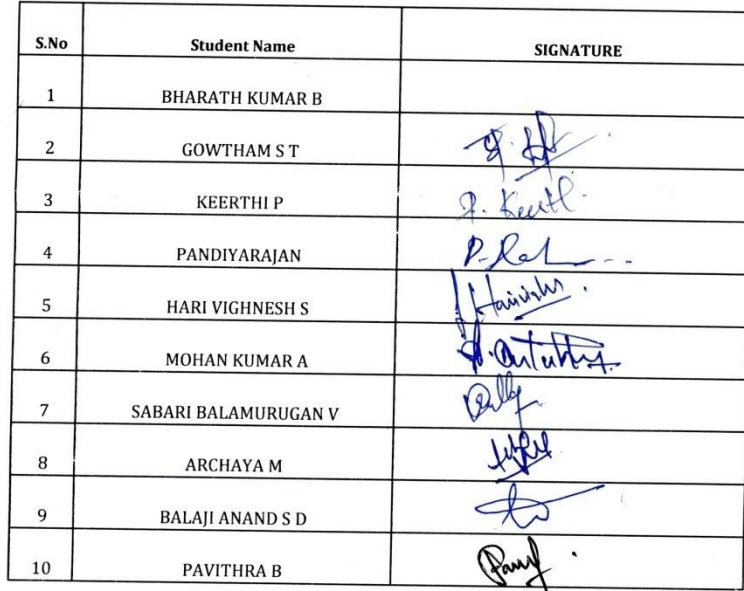 S.No Student Name SIGNATURE
1 BHARATH KUMAR B
2 GOWTHAM S T
3 KEERTHI P P. Keerthi
4 PANDIYARAJAN
5 HARI VIGHNESH S
6 MOHAN KUMAR A
7 SABARI BALAMURUGAN V
8 ARCHAYA M
9 BALAJI ANAND S D
10 PAVITHRA B